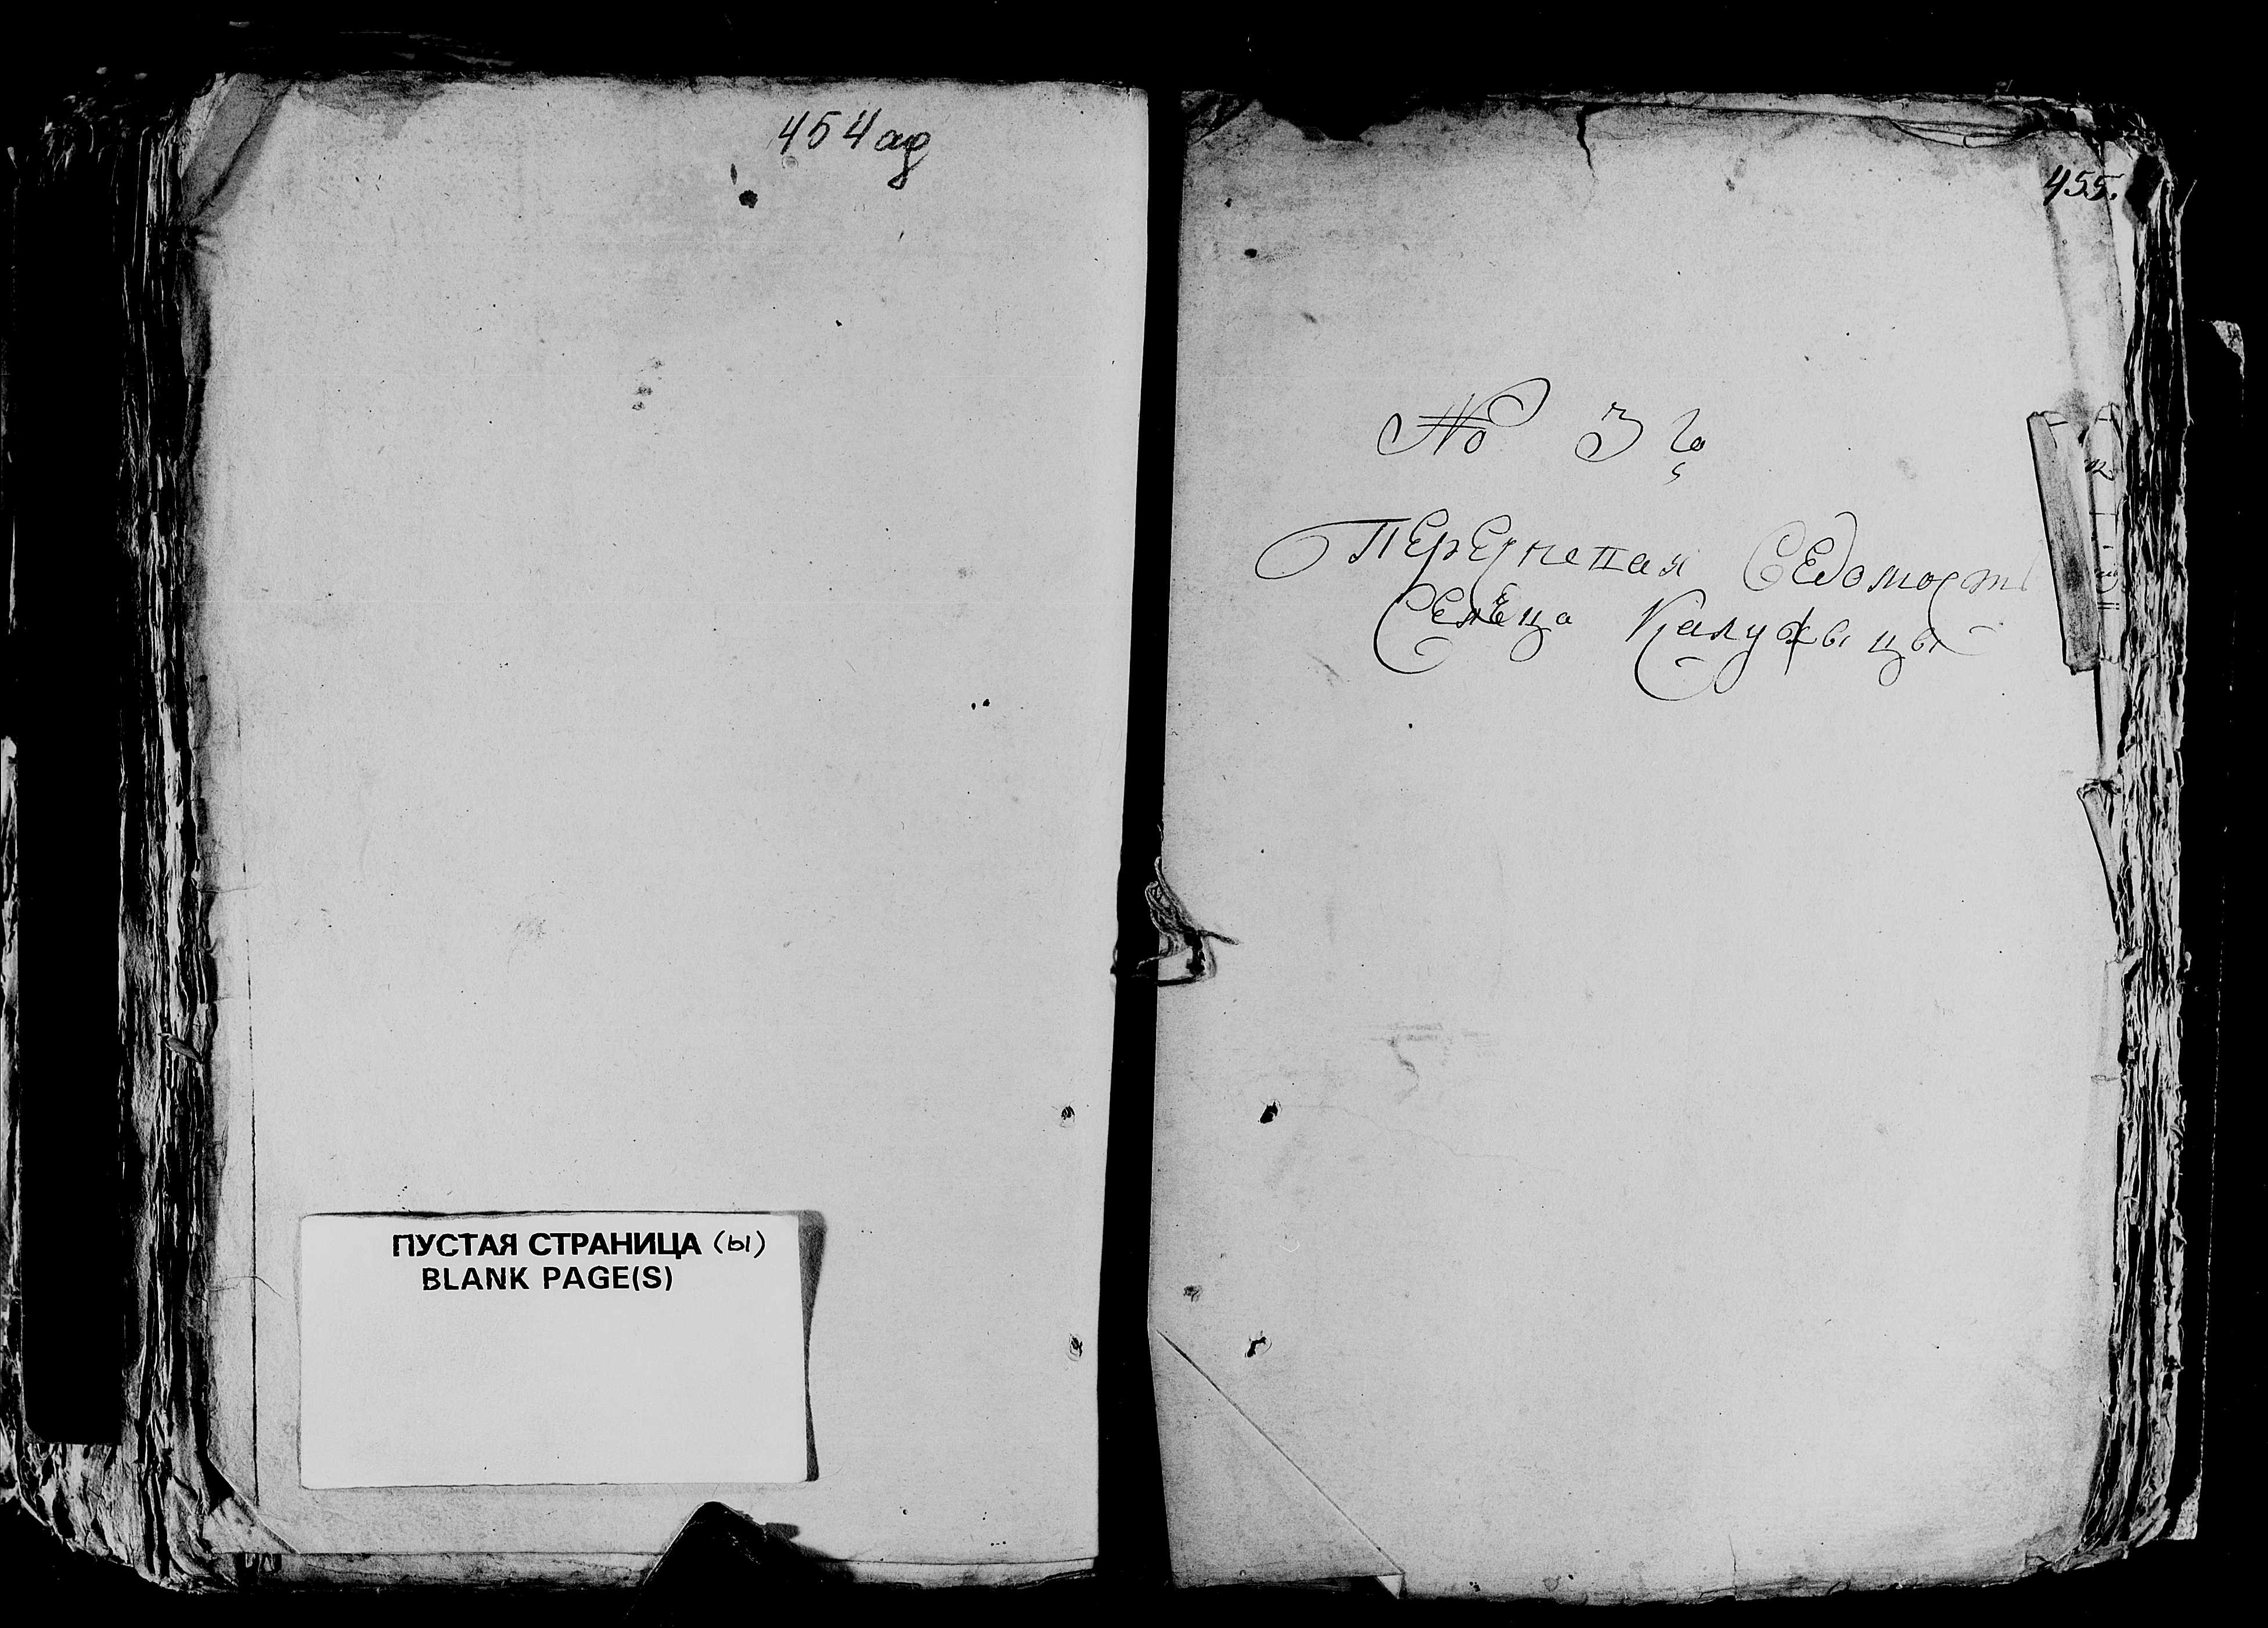 454ад
ПУСТАЯ СТРАНИЦА (ы)
BLANK PAGE(S)
455.
№ 3 го
Перечневая Ведомость
Селца Калужыцы